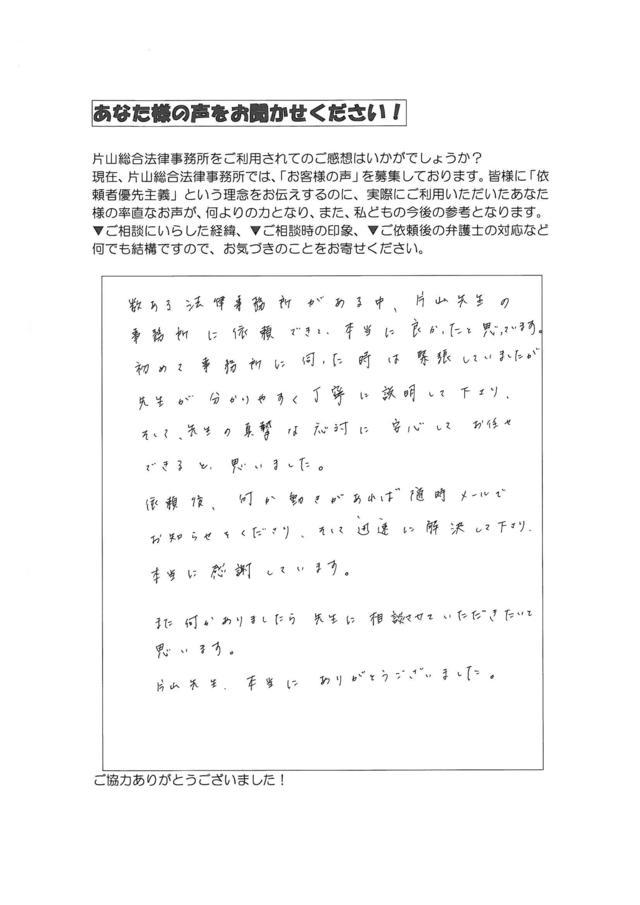 あなた様の声をお聞かせください！
片山総合法律事務所をご利用されてのご感想はいかがでしょうか？
現在、片山総合法律事務所では、「お客様の声」を募集しております。皆様に「依
頼者優先主義」という理念をお伝えするのに、実際にご利用いただいたあなた
様の率直なお声が、何よりの力となり、また、私どもの今後の参考となります。
▼ご相談にいらした経緯、▼ご相談時の印象、▼ご依頼後の弁護士の対応など
何でも結構ですので、お気づきのことをお寄せください。
数ある法律事務所がある中、片山先生の
事務所に依頼できて、本当に良かったと思っています。
初めて事務所に伺った時は緊張していましたが
先生が分かりやすく丁寧に説明して下さり、
そして、先生の真摯な応対に安心してお任せ
できると思いました。
依頼後、何か動きがあれば随時メールで
お知らせをくださり、そして迅速に解決して下さり、
本当に感謝しています。
また何かありましたら先生に相談させていただきたいと
思います。
片山先生、本当にありがとうございました。
ご協力ありがとうございました！